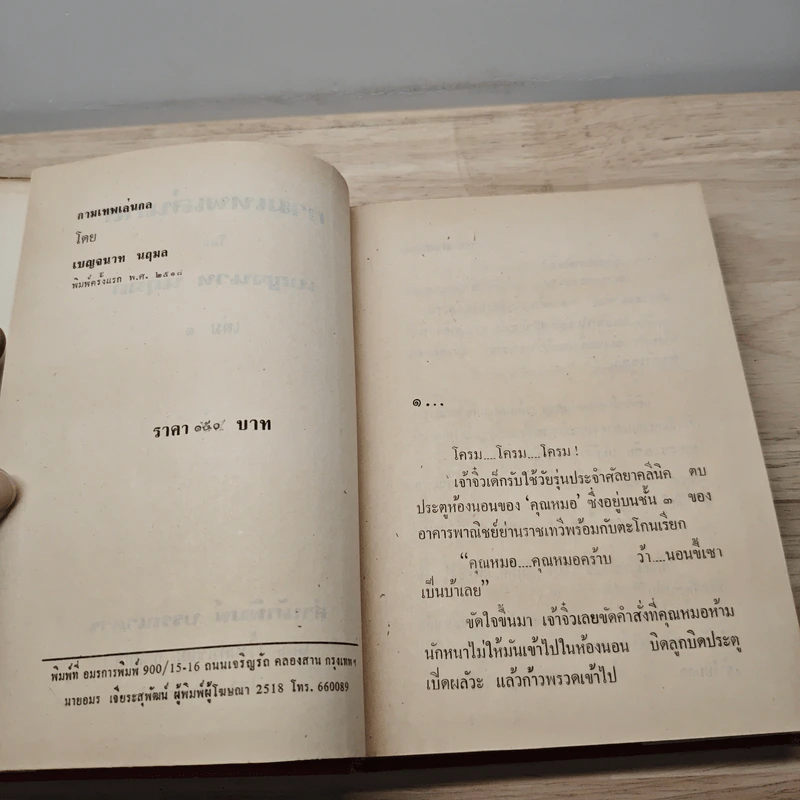 กามเทพเล่นกล
โดย
เบญจนวท นฤมล
พิมพ์ครั้งแรก พ.ศ. ๒๕๑๘
ราคา ๑๕๐ บาท
พิมพ์ที่ อมรการพิมพ์ 900/15-16 ถนนเจริญรัถ คลองสาน กรุงเทพฯ
นายอมร เจียระสุพัฒน์ ผู้พิมพ์ผู้โฆษณา 2518 โทร. 660089
๑...
โครม....โครม....โครม !
เจ้าจิ๋วเด็กรับใช้วัยรุ่นประจำศัลยาคลีนิค ตบ
ประตูห้องนอนของ ‘คุณหมอ’ ซึ่งอยู่บนชั้น ๓ ของ
อาคารพาณิชย์ย่านราชเทวีพร้อมกับตะโกนเรียก
“คุณหมอ....คุณหมอคร้าบ ว้า....นอนขี้เซา
เป็นบ้าเลย”
ขัดใจขึ้นมา เจ้าจิ๋วเลยขัดคำสั่งที่คุณหมอห้าม
นักหนาไม่ให้มันเข้าไปในห้องนอน บิดลูกบิดประตู
เปิดผลัวะ แล้วก้าวพรวดเข้าไป